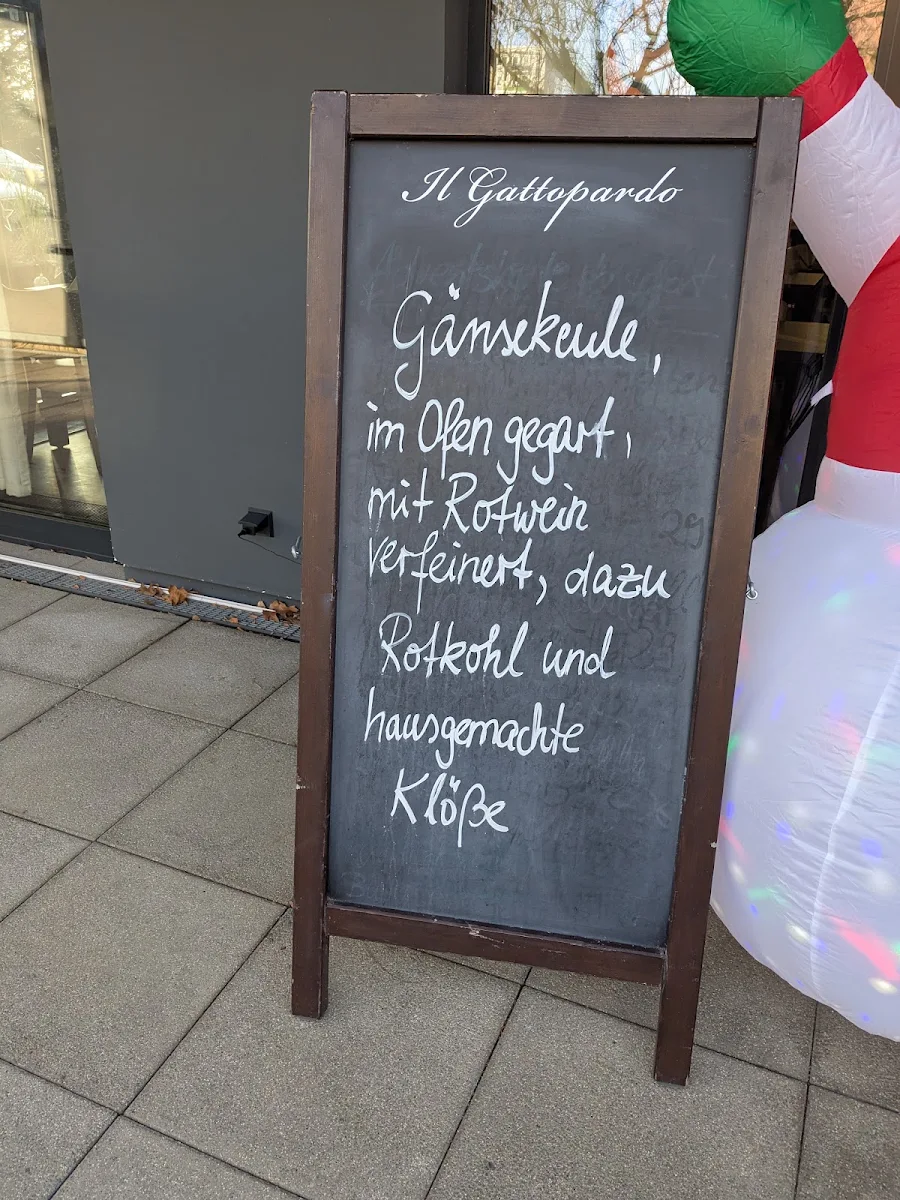 Il Gattopardo
Gänsekeule,
im Ofen gegart,
mit Rotwein
verfeinert, dazu
Rotkohl und
hausgemachte
Klöße